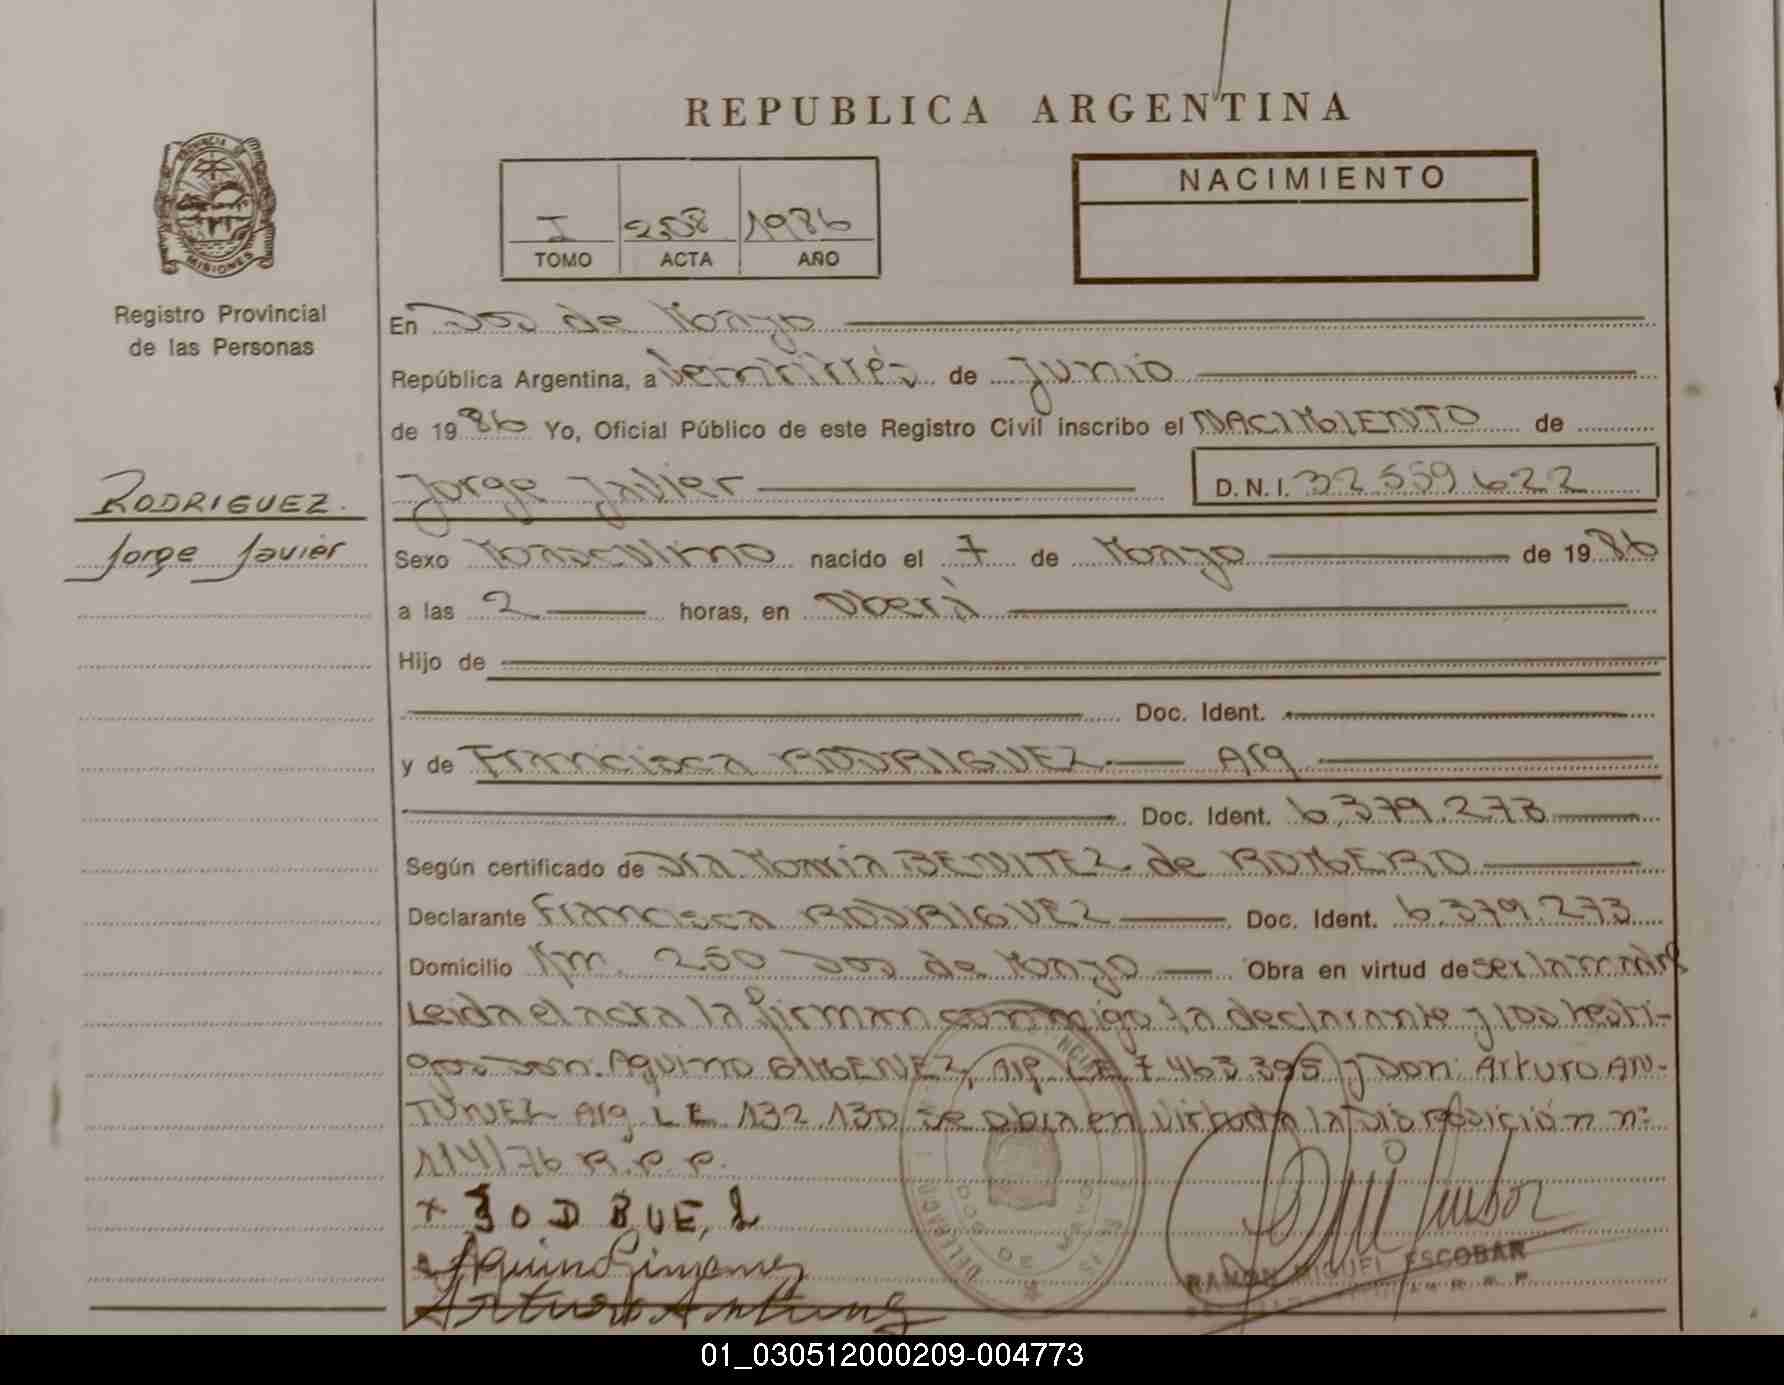 REPUBLICA ARGENTINA
PROVINCIA DE
MISIONES
Registro Provincial
de las Personas
I 258 1986
TOMO ACTA AÑO
NACIMIENTO
En Dos de Mayo
República Argentina, a Veintitrés de Junio
de 1986 Yo, Oficial Público de este Registro Civil inscribo el NACIMIENTO de
Jorge Javier D.N.I. 32 559 622
RODRIGUEZ.
Jorge Javier
Sexo Masculino nacido el 7 de Mayo de 1986
a las 2 horas, en Oberá
Hijo de
Doc. Ident.
y de Francisca RODRIGUEZ Arg
Doc. Ident. 6.379.273
Según certificado de Dra Maria BENITEZ de ROMERO
Declarante Francisca RODRIGUEZ Doc. Ident. 6.379.273
Domicilio Km. 250 Dos de Mayo Obra en virtud de ser la madre
Leida el acta la firman conmigo la declarante y los testi-
gos Don: Aquino GIMENEZ, arg LE 7.463.395 y Don: Arturo AN-
TUNEZ Arg LE 132.130 se obra en virtud a la Disposición nº
114/76 R.P.P.
Aquino Gimenez
Arturo Antunez
RAMON MIGUEL ESCOBAR
01_030512000209-004773